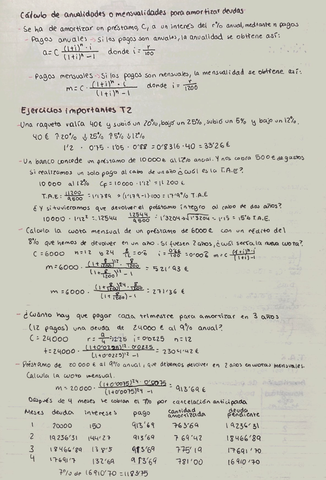 Cálculo de anualidades o mensualidades para amortizar deudas
- Se ha de amortizar un préstamo, C, a un interés del r% anual, mediante n pagos
- Pagos anuales. Si los pagos son anuales, la anualidad se obtiene así:
a = C · (1+i)^n · i / (1+i)^n - 1 donde i = r/100
- Pagos mensuales. Si los pagos son mensuales, la mensualidad se obtiene así:
m = C · (1+i)^n · i / (1+i)^n - 1 donde i = r/1200
Ejercicios importantes T2
- Una raqueta valía 40€ y subió un 20%, bajó un 25%, subió un 5% y bajó un 12%.
40€ ↑20% ↓25% ↑5% ↓12%
1'2 · 0'75 · 1'05 · 0'88 = 0'8316 · 40 = 33'26€
- Un banco concede un préstamo de 10000€ al 12% anual. Y nos cobra 800€ de gastos
si realizamos un solo pago al cabo de un año ¿Cuál es la T.A.E?
10000 al 12% CF = 10000 · 1'12 = 11200€
¿Y si tuviéramos que devolver el préstamo íntegro al cabo de dos años?
10000 · 1'12² = 12544
- Calcula la cuota mensual de un préstamo de 6000€ con un rédito del
8% que hemos de devolver en un año. Si fuesen 2 años, ¿cuál sería la nueva cuota?
C = 6000
= 521'93€
= 271'36€
- ¿Cuánto hay que pagar cada trimestre para amortizar en 3 años
(12 pagos) una deuda de 24000€ al 9% anual?
C = 24000 i = 0'0225 n = 12
- Préstamo de 20000€ al 9% anual, que debemos devolver en 2 años en cuotas mensuales.
Calcula la cuota mensual.
= 913'69€
Después de 4 meses te cobran el 7% por cancelación anticipada
Meses deuda intereses pago cantidad amortizada deuda pendiente
1 20000 150 913'69 763'69 19236'31
2 19236'31 144'27 913'69 769'42 18466'89
3 18466'89 138'5 775'19 17691'70
4 17691'7 132'69 781'00 16910'70
7% de 16910'70 = 1183'75